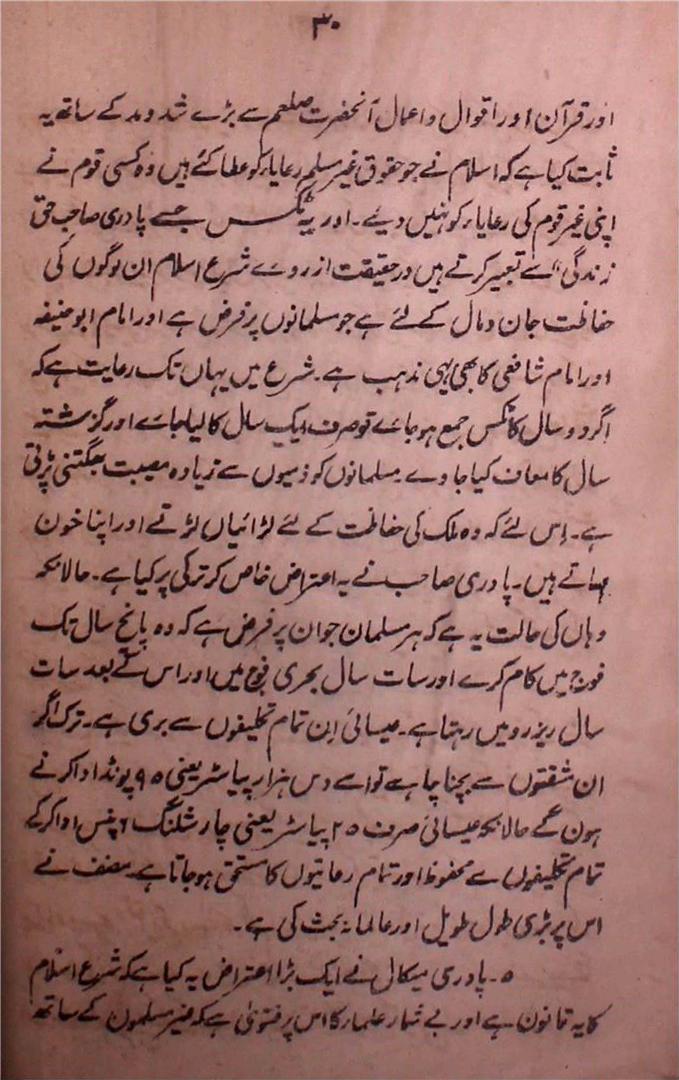 ۳۰
اور قرآن اور اقوال و اعمال آنحضرت صلعم سے بڑے شد و مد کے ساتھ یہ
ثابت کیا ہے کہ اسلام نے جو حقوق غیر مسلم رعایاء کو عطا کئے ہیں وہ کسی قوم نے
اپنی غیر قوم کی رعایاء کو نہیں دیئے۔ اور یہ ٹکس جسے پادری صاحب حق
زندگی" سے تعبیر کرتے ہیں در حقیقت از روے شرع اسلام ان لوگوں کی
حفاظت جان و مال کے لئے ہے جو مسلمانوں پر فرض ہے اور امام ابو حنیفہ
اور امام شافعی کا بھی یہی مذہب ہے۔ شرع میں یہاں تک رعایت ہے کہ
اگر دو سال کا ٹکس جمع ہو جاے تو صرف ایک سال کا لیا جاے اور گزشتہ
سال کا معاف کیا جاوے۔ مسلمانوں کو ذمیوں سے زیادہ مصیبت بھگتنی پڑتی
ہے۔ اِس لئے کہ وہ ملک کی حفاظت کے لئے لڑائیاں لڑتے اور اپنا خون
بہاتے ہیں۔ پادری صاحب نے یہ اعتراض خاص کر ترکی پر کیا ہے۔ حالانکہ
وہاں کی حالت یہ ہے کہ ہر مسلمان جوان پر فرض ہے کہ وہ پانچ سال تک
فوج میں کام کرے اور سات سال بحری فوج میں اور اس کے بعد سات
سال ریزرو میں رہتا ہے۔ عیسائی اِن تمام تکلیفوں سے بری ہے۔ ترک اگر
ان مشقتوں سے بچنا چاہے تو اسے دس ہزار پیاسٹر یعنی ۹۵ پونڈ ادا کرنے
ہون گے حالانکہ عیسائی صرف ۲۵ پیاسٹر یعنی چار شلنگ ۶ پنس ادا کر کے
تمام تکلیفوں سے محفوظ اور تمام رعایتوں کا مستحق ہو جاتا ہے۔ مصنف نے
اس پر بڑی طول طویل اور عالمانہ بحث کی ہے۔
۵۔ پادری میکال نے ایک بڑا اعتراض یہ کیا ہے کہ شرع اسلام
کا یہ قانون ہے اور بے شمار علماء کا اس پر فتویٰ ہے کہ غیر مسلموں کے ساتھ